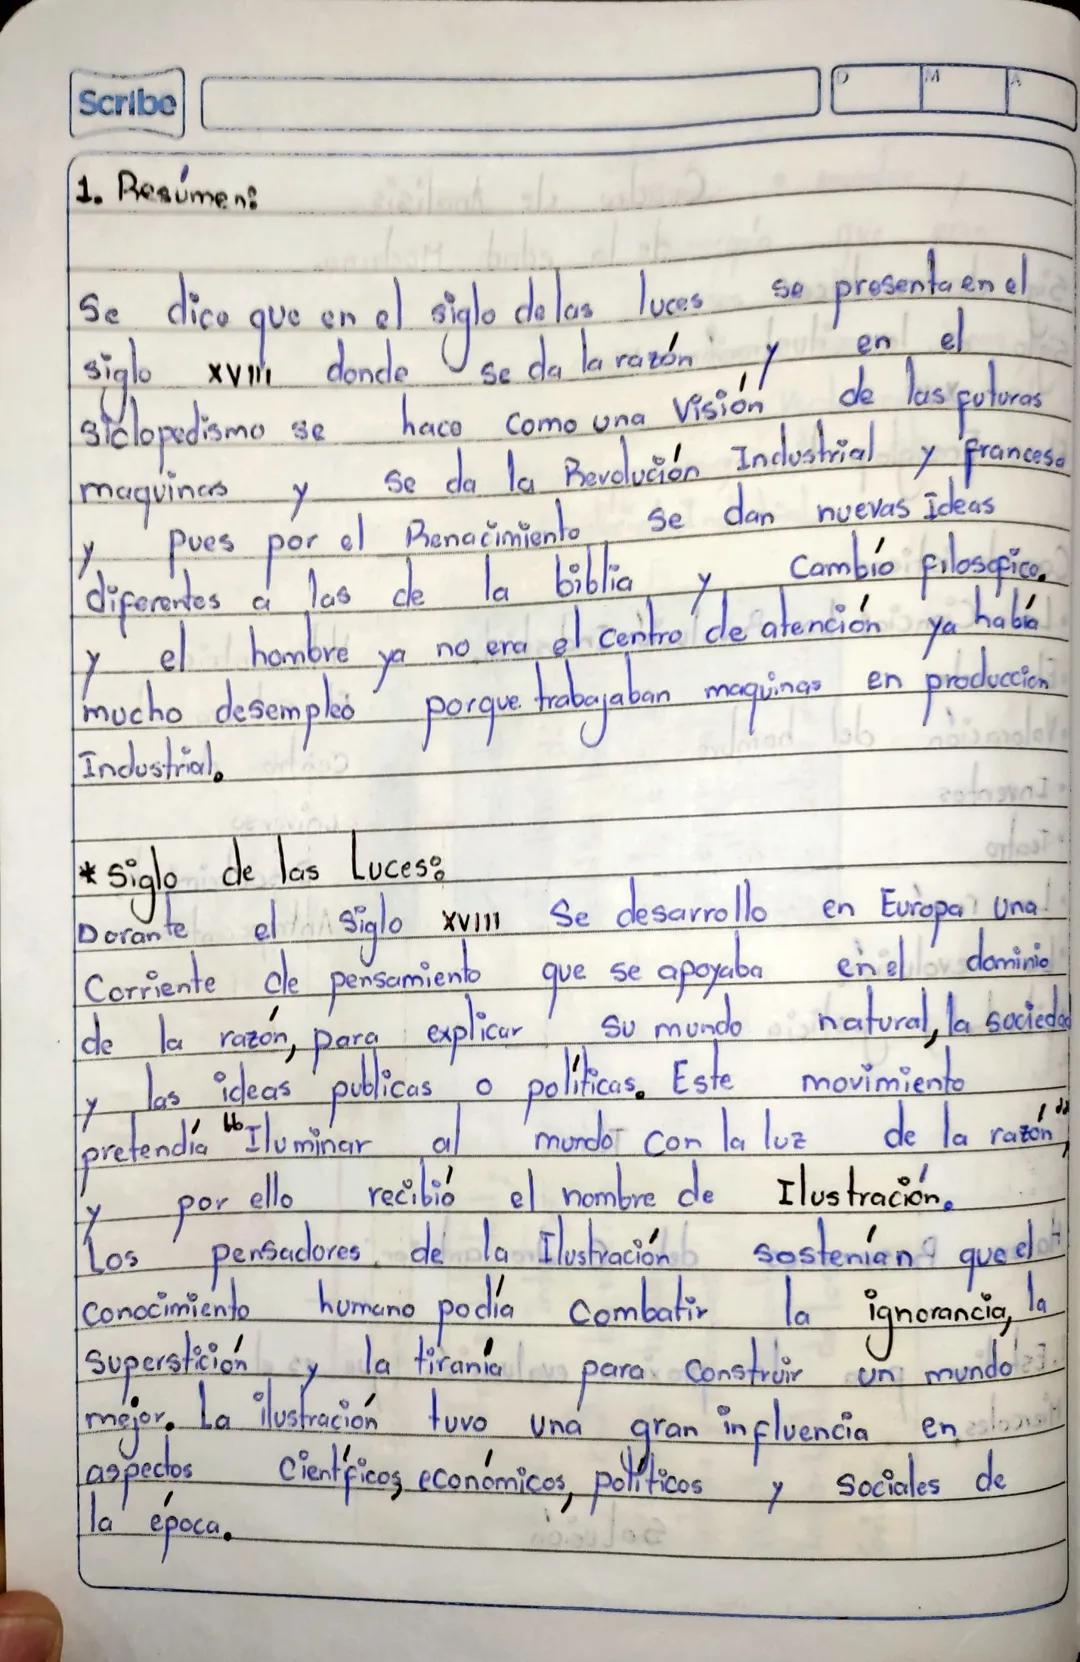 Scribe
D M A
1. Resúmen:
Se dice que en el siglo de las luces se presenta en el
siglo XVIII donde se da la razón y en el
siclopedismo se hace como una Visión de las futuras
maquinas y se da la Revolución Industrial y francesa
y pues por el Renacimiento se dan nuevas Ideas
diferentes a las de la biblia y Cambío filosofico,
y el hombre ya no era el centro de atención ya había
mucho desempleó porque trabajaban maquinas en produccion
Industrial.
* Siglo de las Luces:
Dorante el siglo XVIII Se desarrollo en Europa una
Corriente de pensamiento que se apoyaba en el dominio
de la razón, para explicar su mundo natural, la sociedad
y las ideas publicas o políticas. Este movimiento
pretendía "Iluminar al mundo con la luz de la razón",
y por ello recibió el nombre de Ilustración.
Los pensadores de la Ilustración sostenían que el
Conocimiento humano podía Combatir la ignorancia, la
Superstición y la tiranía para Construir un mundo
mejor. La ilustración tuvo una gran influencia en
aspectos Científicos, económicos, políticos y Sociales de
la época.